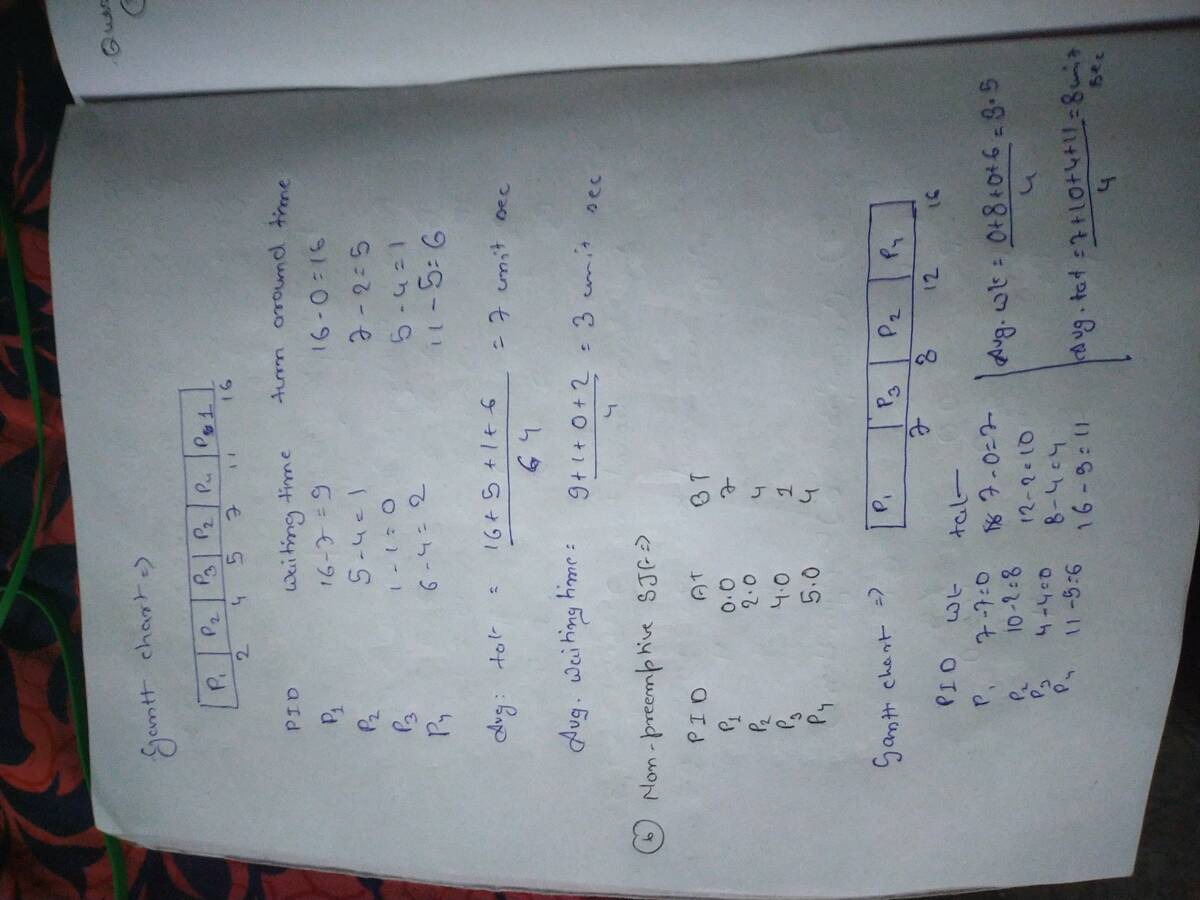 Gantt chart =>
P1 P2 P3 P2 P4 P1
2 4 5 7 11 16
PID waiting time turn around time
P1 16-7=9 16-0=16
P2 5-4=1 7-2=5
P3 1-1=0 5-4=1
P4 6-4=2 11-5=6
Avg: tat = 16+5+1+6 / 4 = 7 unit sec
Avg. waiting time = 9+1+0+2 / 4 = 3 unit sec
(b) Non-preemptive SJF =>
PID AT BT
P1 0.0 7
P2 2.0 4
P3 4.0 1
P4 5.0 4
Gantt chart =>
P1 P3 P2 P4
7 8 12 16
PID wt tat
P1 7-7=0 7-0=7
P2 10-2=8 12-2=10
P3 4-4=0 8-4=4
P4 11-5=6 16-5=11
Avg. wt = 0+8+0+6 / 4 = 3.5
Avg. tat = 7+10+4+11 / 4 = 8 unit sec